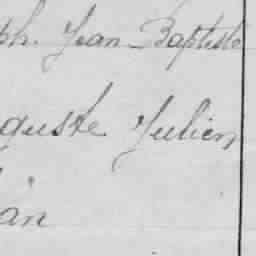 ph. Jean Baptiste
guste Julien
an